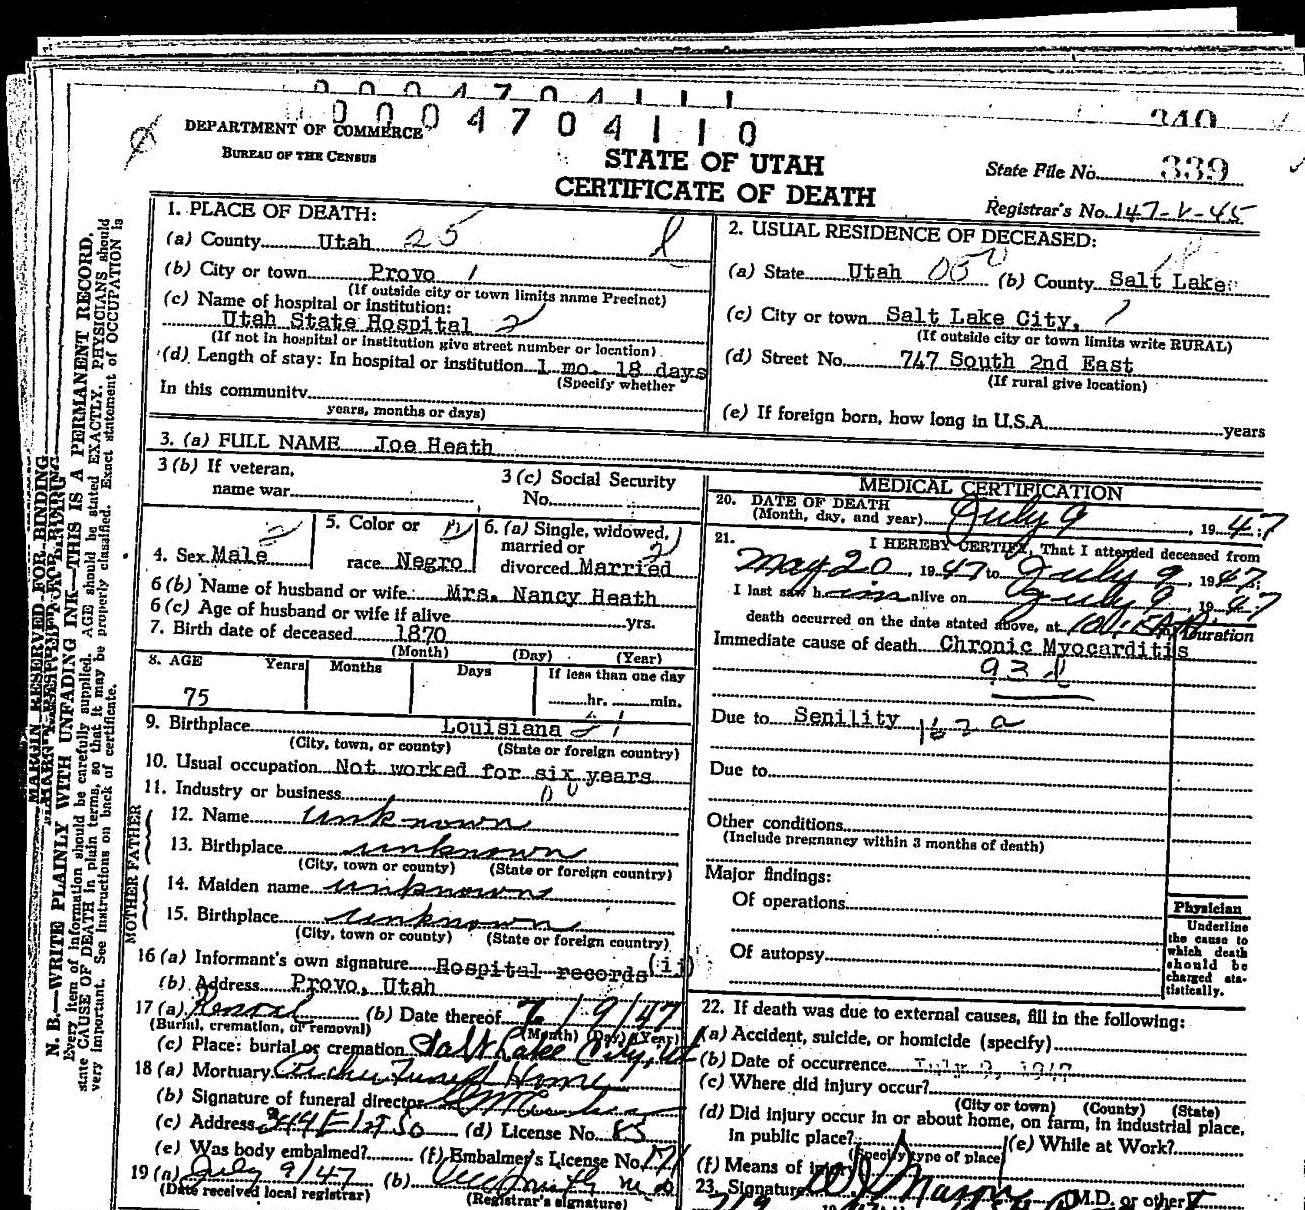 0 0 0 4 7 0 4 1 1 0
340
DEPARTMENT OF COMMERCE
BUREAU OF THE CENSUS
STATE OF UTAH
CERTIFICATE OF DEATH
State File No. 339
Registrar's No. 147-V-45
MARGIN RESERVED FOR BINDING
N. B.—WRITE PLAINLY WITH UNFADING INK—THIS IS A PERMANENT RECORD.
Every item of information should be carefully supplied. AGE should be stated EXACTLY. PHYSICIANS should
state CAUSE OF DEATH in plain terms, so that it may be properly classified. Exact statement of OCCUPATION is
very important. See instructions on back of certificate.
1. PLACE OF DEATH:
(a) County Utah 25
(b) City or town Provo 1
(If outside city or town limits name Precinct)
(c) Name of hospital or institution:
Utah State Hospital 2
(If not in hospital or institution give street number or location)
(d) Length of stay: In hospital or institution 1 mo. 18 days
(Specify whether
In this community
years, months or days)
2. USUAL RESIDENCE OF DECEASED:
(a) State Utah (b) County Salt Lake
(c) City or town Salt Lake City,
(If outside city or town limits write RURAL)
(d) Street No. 747 South 2nd East
(If rural give location)
(e) If foreign born, how long in U.S.A. years
3. (a) FULL NAME Joe Heath
3 (b) If veteran,
name war
3 (c) Social Security
No.
4. Sex Male
5. Color or
race Negro
6. (a) Single, widowed,
married or
divorced Married
6 (b) Name of husband or wife: Mrs. Nancy Heath
6 (c) Age of husband or wife if alive yrs.
7. Birth date of deceased 1870
(Month) (Day) (Year)
8. AGE Years Months Days If less than one day
75 hr. min.
9. Birthplace Louisiana
(City, town, or county) (State or foreign country)
10. Usual occupation Not worked for six years
11. Industry or business
FATHER
12. Name unknown
13. Birthplace unknown
(City, town or county) (State or foreign country)
MOTHER
14. Maiden name unknown
15. Birthplace unknown
(City, town or county) (State or foreign country)
16 (a) Informant's own signature Hospital records
(b) Address Provo, Utah
17 (a) Removal (b) Date thereof 7/9/47
(Burial, cremation, or removal) (Month) (Day) (Year)
(c) Place: burial or cremation Salt Lake City, Ut
18 (a) Mortuary Funeral Home
(b) Signature of funeral director
(c) Address 244 E 1st So (d) License No. 85
(e) Was body embalmed? (f) Embalmer's License No. 171
19 (a) July 9/47 (b)
(Date received local registrar) (Registrar's signature)
MEDICAL CERTIFICATION
20. DATE OF DEATH
(Month, day, and year) July 9, 1947
21. I HEREBY CERTIFY, That I attended deceased from
May 20, 1947 to July 9, 1947
I last saw him alive on July 9, 1947
death occurred on the date stated above, at
Duration
Immediate cause of death Chronic Myocarditis
93 d
Due to Senility 162 a
Due to
Other conditions
(Include pregnancy within 3 months of death)
Major findings:
Of operations
Of autopsy
Physician
Underline
the cause to
which death
should be
charged sta-
tistically.
22. If death was due to external causes, fill in the following:
(a) Accident, suicide, or homicide (specify)
(b) Date of occurrence July 9, 1947
(c) Where did injury occur?
(City or town) (County) (State)
(d) Did injury occur in or about home, on farm, in industrial place,
in public place? (e) While at Work?
(Specify type of place)
(f) Means of injury
23. Signature (M.D. or other)